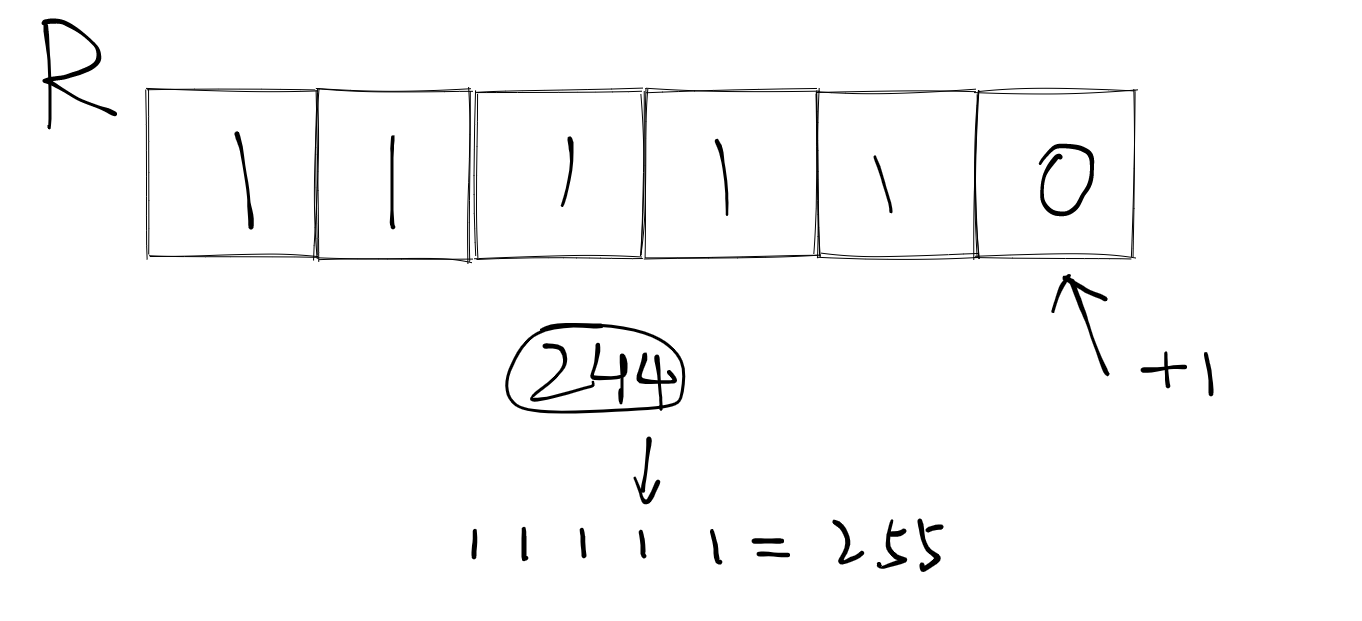 R
1 1 1 1 1 0
244
+1
1 1 1 1 1 = 255